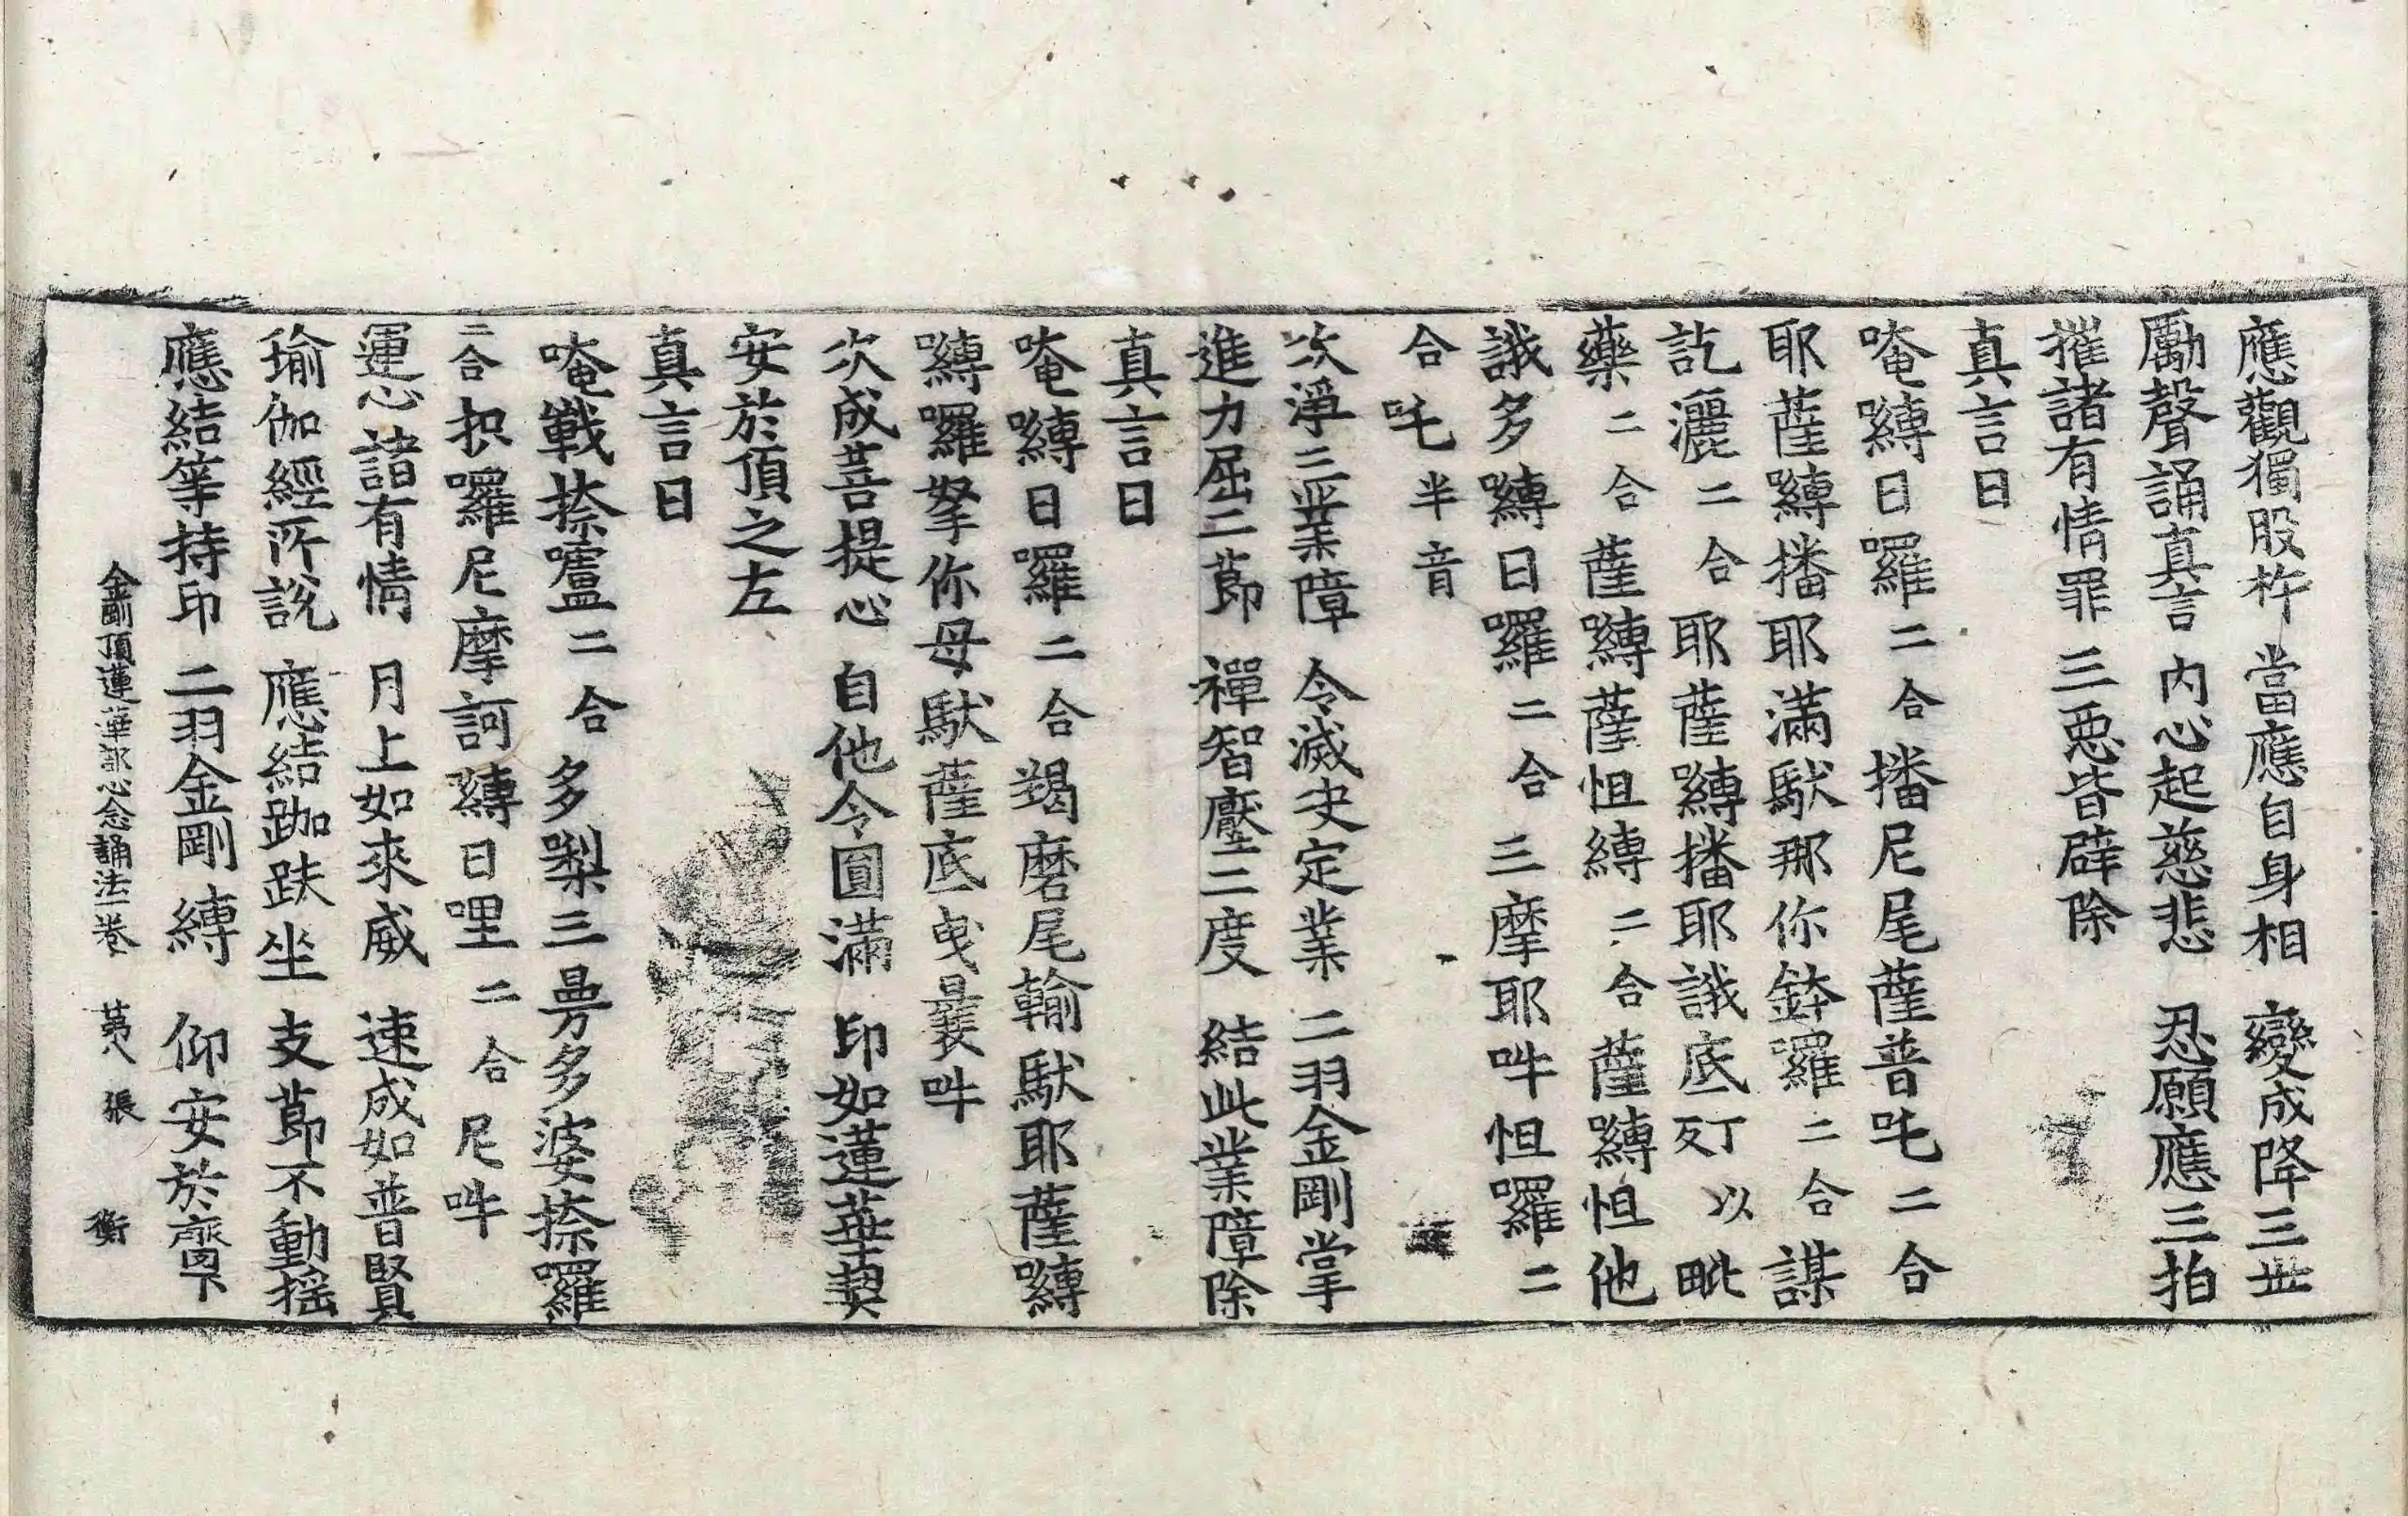 應觀獨股杵　當應自身相　變成降三世
勵聲誦真言　内心起慈悲　忍願應三拍
摧諸有情罪　三惡皆辟除
真言曰
唵嚩日囉二合播尼尾薩普吒二合
耶薩嚩播耶滿馱那你鉢囉二合謀
訖灑二合耶薩嚩播耶誐底丁以毗
藥二合薩嚩薩怛縛二合薩嚩怛他
誐多嚩日囉二合三摩耶吽怛囉二
合吒半音
次淨三業障　令滅決定業　二羽金剛掌
進力屈二節　禪智壓二度　結此業障除
真言曰
唵嚩日囉二合羯磨尾輸馱耶薩嚩
嚩囉拏你母馱薩底曳曩吽
次成菩提心　自他令圓滿　印如蓮華契
安於頂之左
真言曰
唵戰捺嚧二合多㗚三曼多婆捺囉
二合抧囉尼摩訶嚩日哩二合尼吽
運心諸有情　月上如來威　速成如普賢
瑜伽經所說　應結跏趺坐　支節不動搖
應結等持印　二羽金剛縛　仰安於齊下
金剛頂蓮華部心念誦法一卷　第八張　衡